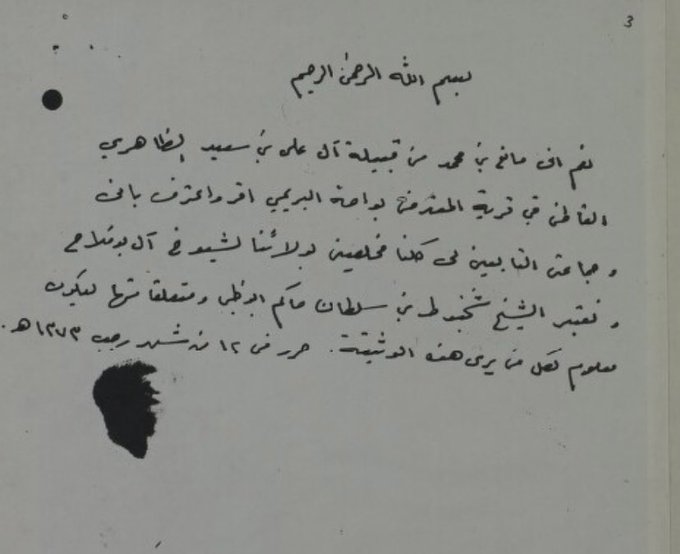 3
بسم الله الرحمن الرحيم
نعم انى مانع بن محمد من قبيلة آل على بن سعيد الظاهري
القاطن في قرية المعترض بواحة البريمي اقر واعترف بانى
وجماعتى التابعين لى كلنا مخلصين بولائنا لشيوخ آل بوفلاح
ونعتبر الشيخ شخبوط بن سلطان حاكم ابوظبى ومتعلقاتها ليكون
معلوم لكل من يرى هذه الوثيقة. حرر فى ١٢ من شهر رجب ١٣٧٣ه.